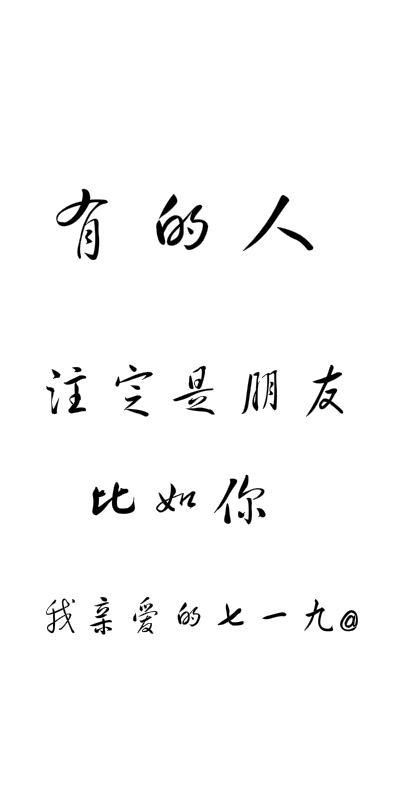 有的人
注定是朋友
比如你
我亲爱的七一九@